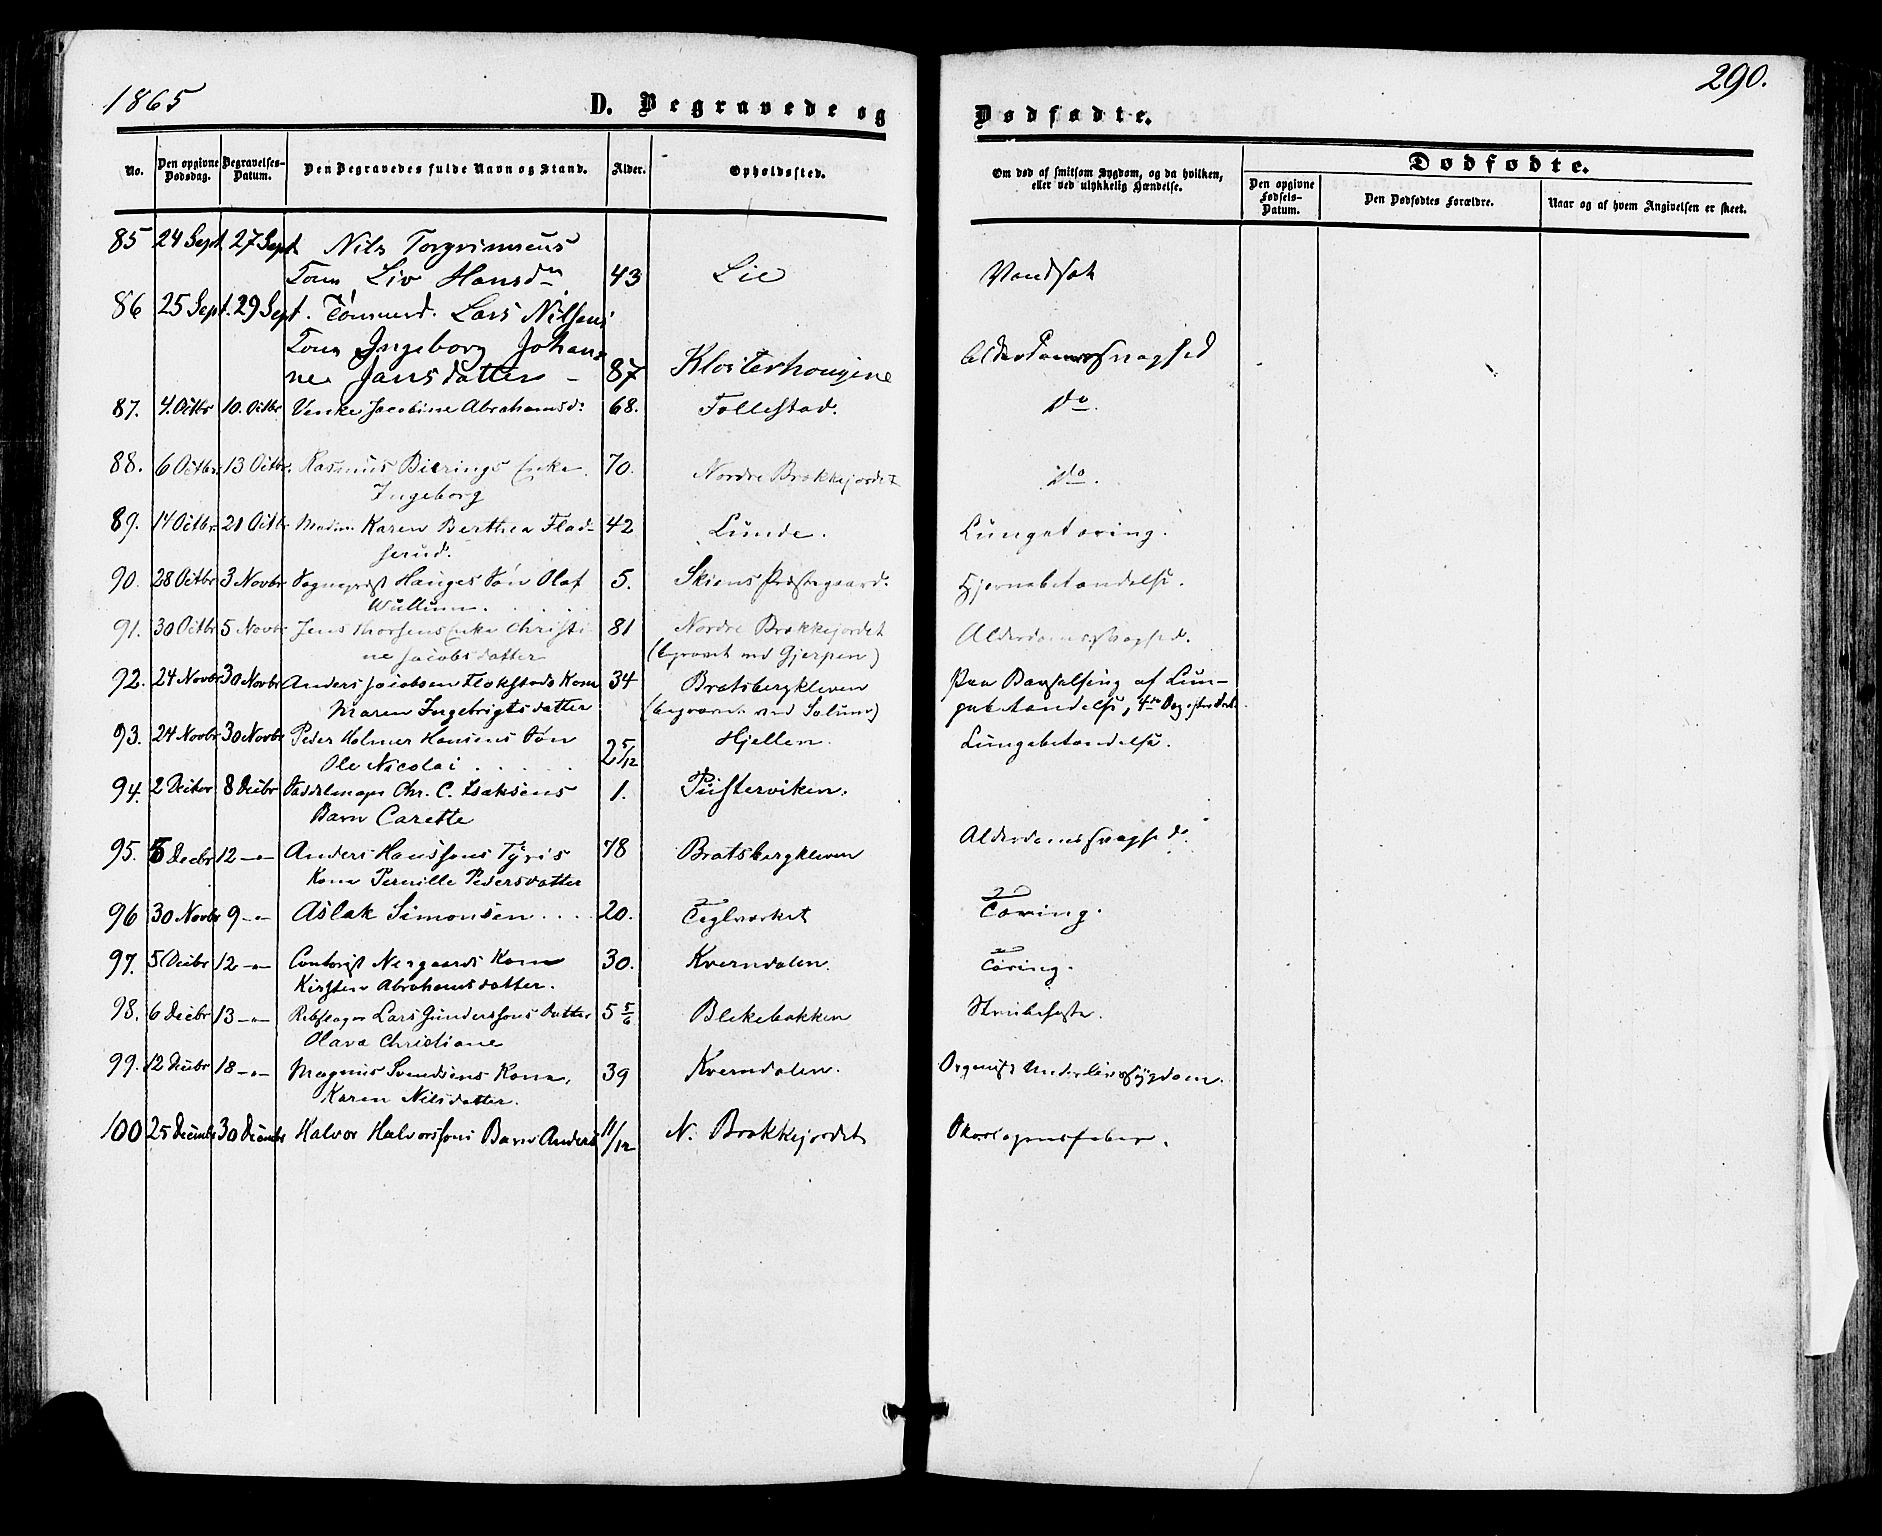 1865
290.
D. Begravede og Dødfødte.
No.
Den opgivne Dødsdag.
Begravelses-Datum.
Den Begravedes fulde Navn og Stand.
Alder.
Opholdssted.
Om død af smitsom Sygdom, og da hvilken, eller ved ulykkelig Hændelse.
Dødfødte.
Den opgivne Fødsels-Datum.
Den Dødfødtes Forældre.
Naar og af hvem Angivelsen er skeet.
85 24 Sept 27 Sept Nils Torgrimsens
Kone Liv Hansdn 43 Lie Vandsot
86 25 Sept. 29 Sept. Tømmerd. Lars Nilsens
Kone Ingeborg Johan-
ne Jansdatter - 87 Klosterhougene Alderdomssvaghed
87. 4. Octbr 10. Octbr Venke Jacobine Abrahamsd: 68. Follestad. do.
88. 6 Octbr 13 Octbr. Rasmus Bierings Enke 70. Nordre Brekkejordet do.
Ingeborg
89. 14 Octbr 21 Octbr Madm. Karen Berthea Flad- 42 Lunde. Lungetæring.
serud.
90. 28 Octbr 3 Novbr Sognepræst Hauges Søn Olaf 5. Skiens Præstegaard. Hjernebetændelse.
Wullum.
91. 30 Octbr 5 Novbr Jens Thorsens Enke Christi 81 Nordre Brekkejordet Alderdomssvaghed.
ne Jacobsdatter (begravet ved Gjerpen)
92. 24 Novbr 30 Novbr Anders Jacobsen Flakstads Kone 34 Bratsbergkleven Paa Barselseng af Lun-
Maren Ingebrigtsdatter (begravet ved Solum) gebetændelse, 4de Dag efter
93. 24 Novbr 30 Novbr Peder Holmer Hansens Søn 2 5/12 Hjellen. Lungebetændelse.
Ole Nicolai
94. 2 Decbr 8 Decbr Sadelmager Chr. C. Isaksens 1. Pusterviken.
Barn Carette
95. 5 Decbr 12 -"- Anders Hanssons Tyris 78 Bratsbergkleven Alderdomssvaghed.
Kone Pernille Pedersdatter
96 30 Novbr 9 -"- Aslak Simonsen 20. Teglverket Tæring.
97. 5 Decbr 12 -"- Contorist Nergaards Kone 30. Kverndalen. Tæring.
Kirsten Abrahamsdatter.
98. 6 Decbr 13 -"- Rebslager Lars Gunderssons Datter 5 5/6 Blekebakken Strubehoste.
Olava Christiane
99. 12 Decbr 18 -"- Magnus Svendsens Kone, 39 Kverndalen. Organisk Underlivssygdom.
Karen Nilsdatter.
100 25 Decembr 30 Decembr Halvor Halvorssons Barn Anders 11/12 N. Brekkejordet Skarlagensfeber.